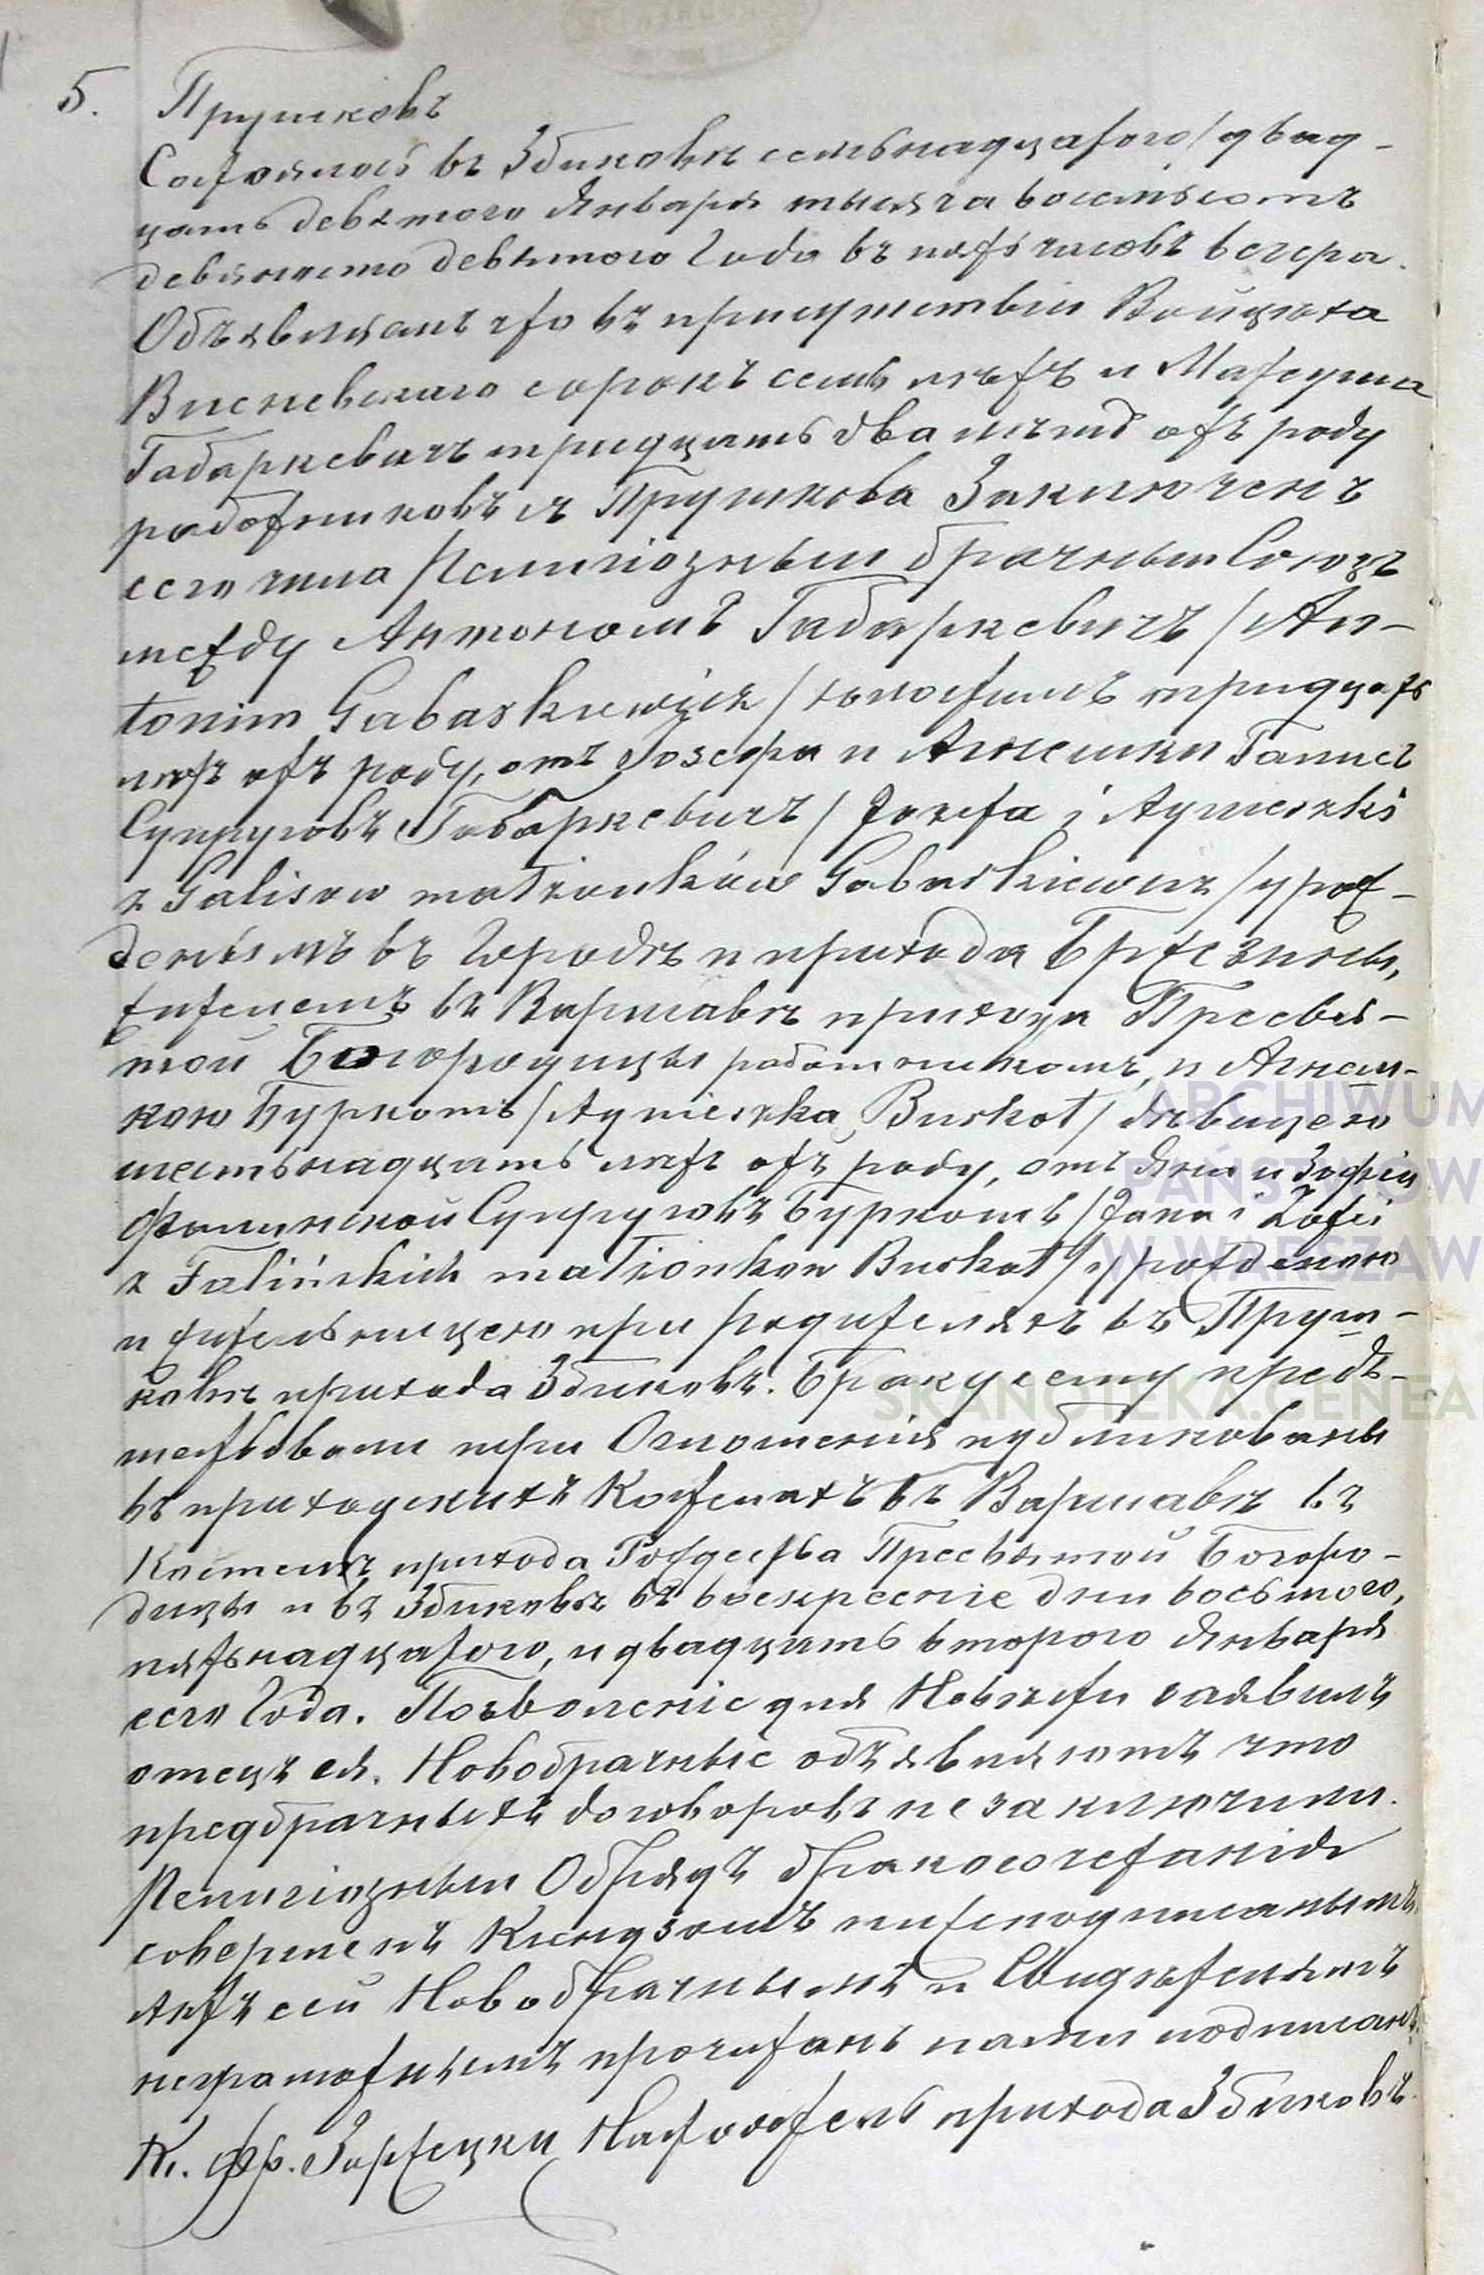 5. Прушковъ
Состоялось въ Збиковѣ семьнадцатого / двад-
цать девятого Января тысяча восемьсотъ
девяносто девятого Года въ пять часовъ вечера.
Объявляемъ что въ присутствіи Войцѣха
Висневскаго сорокъ семь лѣтъ и Матеуша
Габаркевичъ тридцать два лѣтъ отъ роду
работниковъ съ Прушкова Заключенъ
сего числа Религіозный брачный Союзъ
между Антонимъ Габаркевичъ / An-
tonim Gabarkiewicz / холостымъ тридцать
лѣтъ отъ роду, отъ Іозефа и Агнешки Галисъ
Супруговъ Габаркевичъ / Józefa i Agnieszki
z Galisow małżonków Gabarkiewicz / урож-
деннымъ въ городѣ и прихода Бржезины,
жителемъ въ Варшавѣ прихода Пресвя-
той Богородицы работникомъ, и Агнеш-
кою Буркотъ / Agnieszka Burkot / дѣвицею
шестьнадцать лѣтъ отъ роду, отъ Яна и Зофіи
Фалинской Супруговъ Буркотъ / Jana i Zofii
z Falińskich małżonkow Burkot / урожденою
и жительницею при родителяхъ въ Пруш-
ковѣ прихода Збиковъ. Браку сему пред-
шествовали три Оглошенія публикованы
въ приходскихъ Костелахъ въ Варшавѣ въ
Костелѣ прихода Рождества Пресвятой Богоро-
дицы и въ Збиковѣ въ воскресніе дни восьмого,
пятьнадцатого, и двадцать второго Января
сего Года. Позволеніе для Невѣсты заявилъ
отецъ ея. Новобрачные объявляютъ что
предбрачныхъ договоровъ не заключили.
Религіозный Обрядъ бракосочетанія
совершенъ Ксендзомъ нижеподписанымъ.
Актъ сей Новобрачнымъ и Свидѣтелямъ
неграмотнымъ прочитанъ нами подписанъ.
К. Фр. Заржецки Настоятель прихода Збиковъ.
ARCHIWUM
PAŃSTWOW
W WARSZAW
SKANOTEKA.GENEA